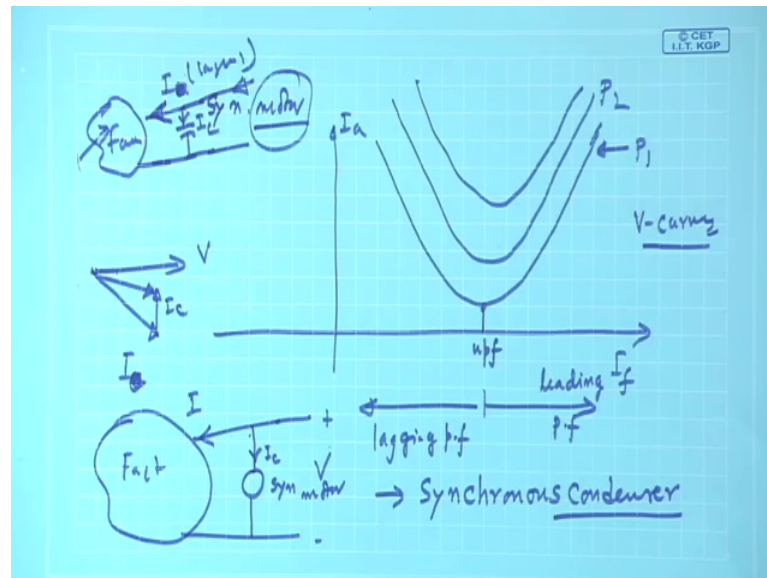 © CET
I.I.T. KGP
Syn. motor
Ic
Ia
P2
P1
V-curves
V
Ic
upf
If
leading
p.f
lagging p.f
I
Fact
+
Ic
V
Syn motor
-
→ Synchronous Condenser